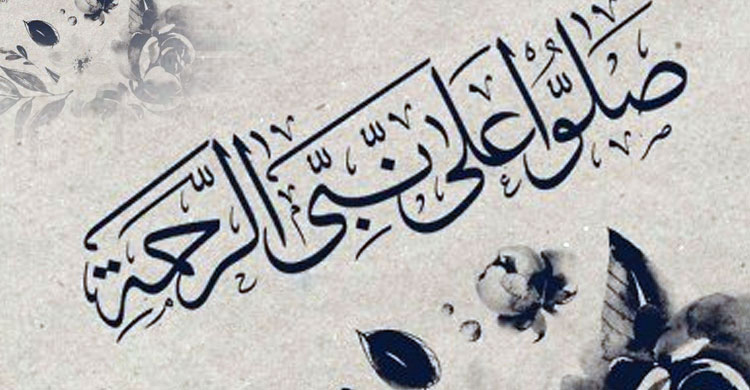 صَلُّوا عَلَى نَبِّيِ الرَّحمَةِ